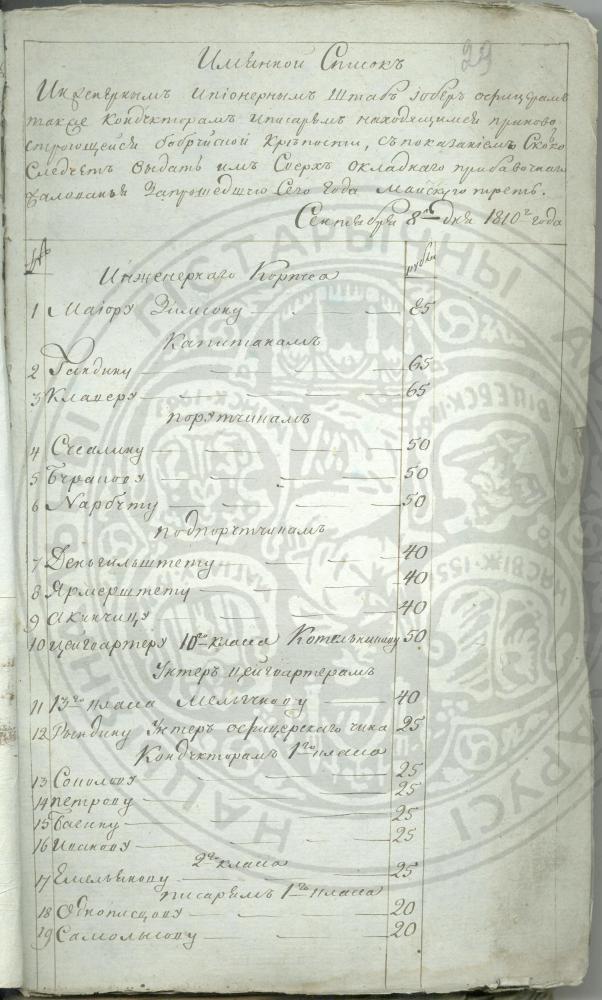 29
Имянной Списокъ
Инженернымъ ипіонернымъ Штабъ иоберъ офицерамъ
также Кондукторамъ иписарямъ находящимся приново
строющейся бобруйской Крѣпости, съпоказаніемъ Сколко
Следуетъ Выдать имъ Сверхъ окладнаго прибавочнаго
жалованья Запрошедшую Сего Года Майскую треть.
Сентября 8го дня 1810го года
№ рубли
Инженернаго Корпуса
1 Маіору 85
Капитанамъ
2 65
3 Клаверу 65
порутчикамъ
4 50
5 50
6 Нарбуту 50
подпорутчикамъ
7 Деньгильштету 40
8 Ярмерштету 40
9 Акинчицу 40
10 цейгвартеру 10го класса Котельникову 50
Унтеръ цейгвартерамъ
11 13го класса Мельчкову 40
12 Рындину Унтеръ офицерскаго чина 25
Кондукторамъ 1го класса
13 Соколову 25
14 петрову 25
15 Баеину 25
16 Иванову 25
2го класса
17 Емельянову 25
писарямъ 1го класса
18 Однописцову 20
19 Самолысову 20